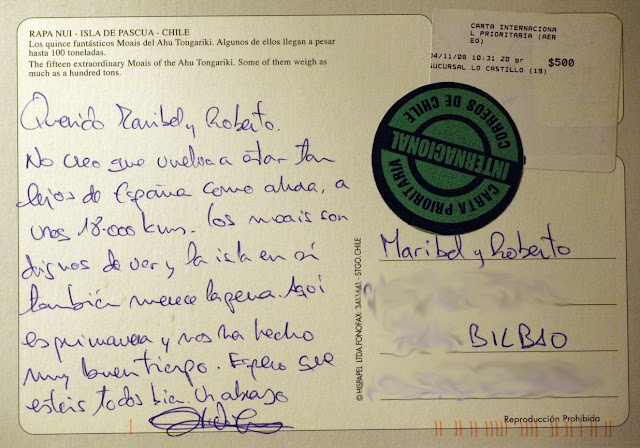 RAPA NUI - ISLA DE PASCUA - CHILE
Los quince fantásticos Moais del Ahu Tongariki. Algunos de ellos llegan a pesar
hasta 100 toneladas.
The fifteen extraordinary Moais of the Ahu Tongariki. Some of them weigh as
much as a hundred tons.
CARTA INTERNACIONA
L PRIORITARIA (AER
EO)
04/11/08 10:31 20 gr
$500
SUCURSAL LO CASTILLO (18)
CORREOS DE CHILE
INTERNACIONAL
CARTA PRIORITARIA
Querido Maribel y Roberto.
No creo que vuelva a estar tan
lejos de España como ahora, a
unos 18.000 kms. Los moais son
dignos de ver y la isla en sí
también merece la pena. Aquí
es primavera y nos ha hecho
muy buen tiempo. Espero que
estéis todos bien. Un abrazo
Maribel y Roberto
BILBAO
© HISPAPEL LTDA. FONOFAX: - STGO. CHILE
Reproducción Prohibida